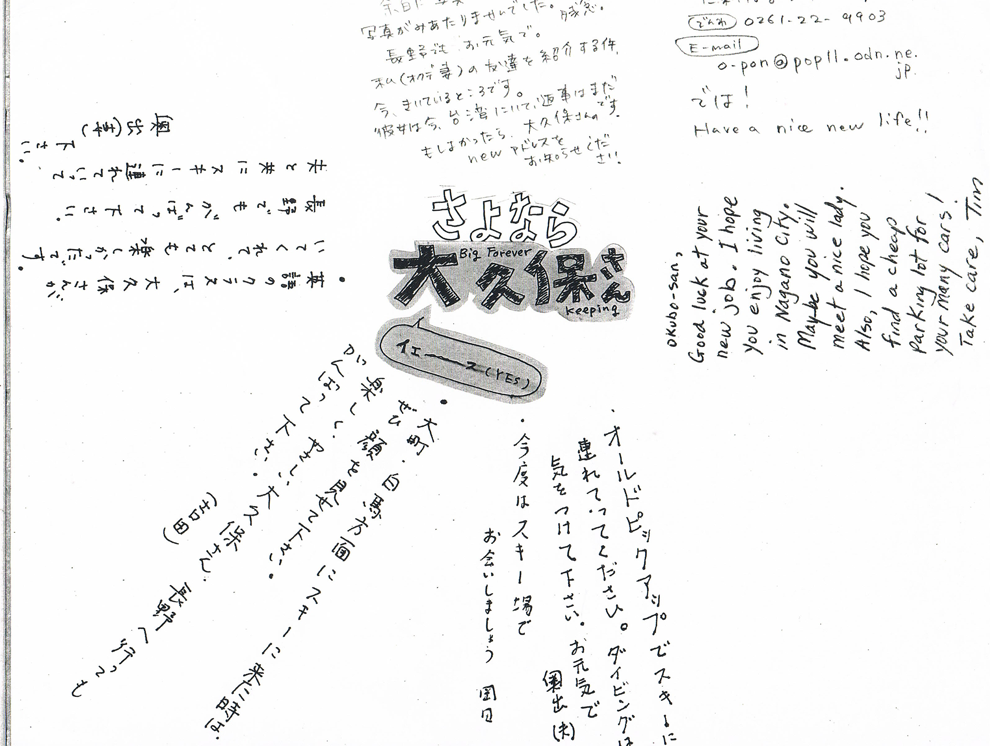 写真がみあたりませんでした。残念。
長野でも お元気で。
私(オクデ妻)の友達を紹介する件、
今、きいているところです。
彼女は今、台湾にいて、返事はまだです。
もしよかったら、大久保さんの
new アドレスを
お知らせください!!
でんわ 0261-22-9903
E-mail
o-pon@pop11.odn.ne.
jp.
では!
Have a nice new life!!
・英語のクラスは、大久保さんが
いてくれて、とても楽しかったです。
長野でもがんばって下さい。
夫と共にスキーに連れていって
下さい。
奥出(妻)
さよなら
Big Forever
大久保さん
keeping
イエーーース(YES)
Okubo-san,
Good luck at your
new job. I hope
you enjoy living
in Nagano City.
Maybe you will
meet a nice lady.
Also, I hope you
find a cheap
parking lot for
your many cars!
Take care, Tim
・オールドピックアップでスキーに
連れてってください。ダイビングは
気をつけて下さい。お元気で
奥出(夫)
・今度はスキー場で
お会いしましょう
・大町・白馬方面にスキーに来た時は、
ぜひ顔を見せて下さい。
楽しい、やさしい大久保さん、長野へ行っても
がんばって下さい。
(吉田)